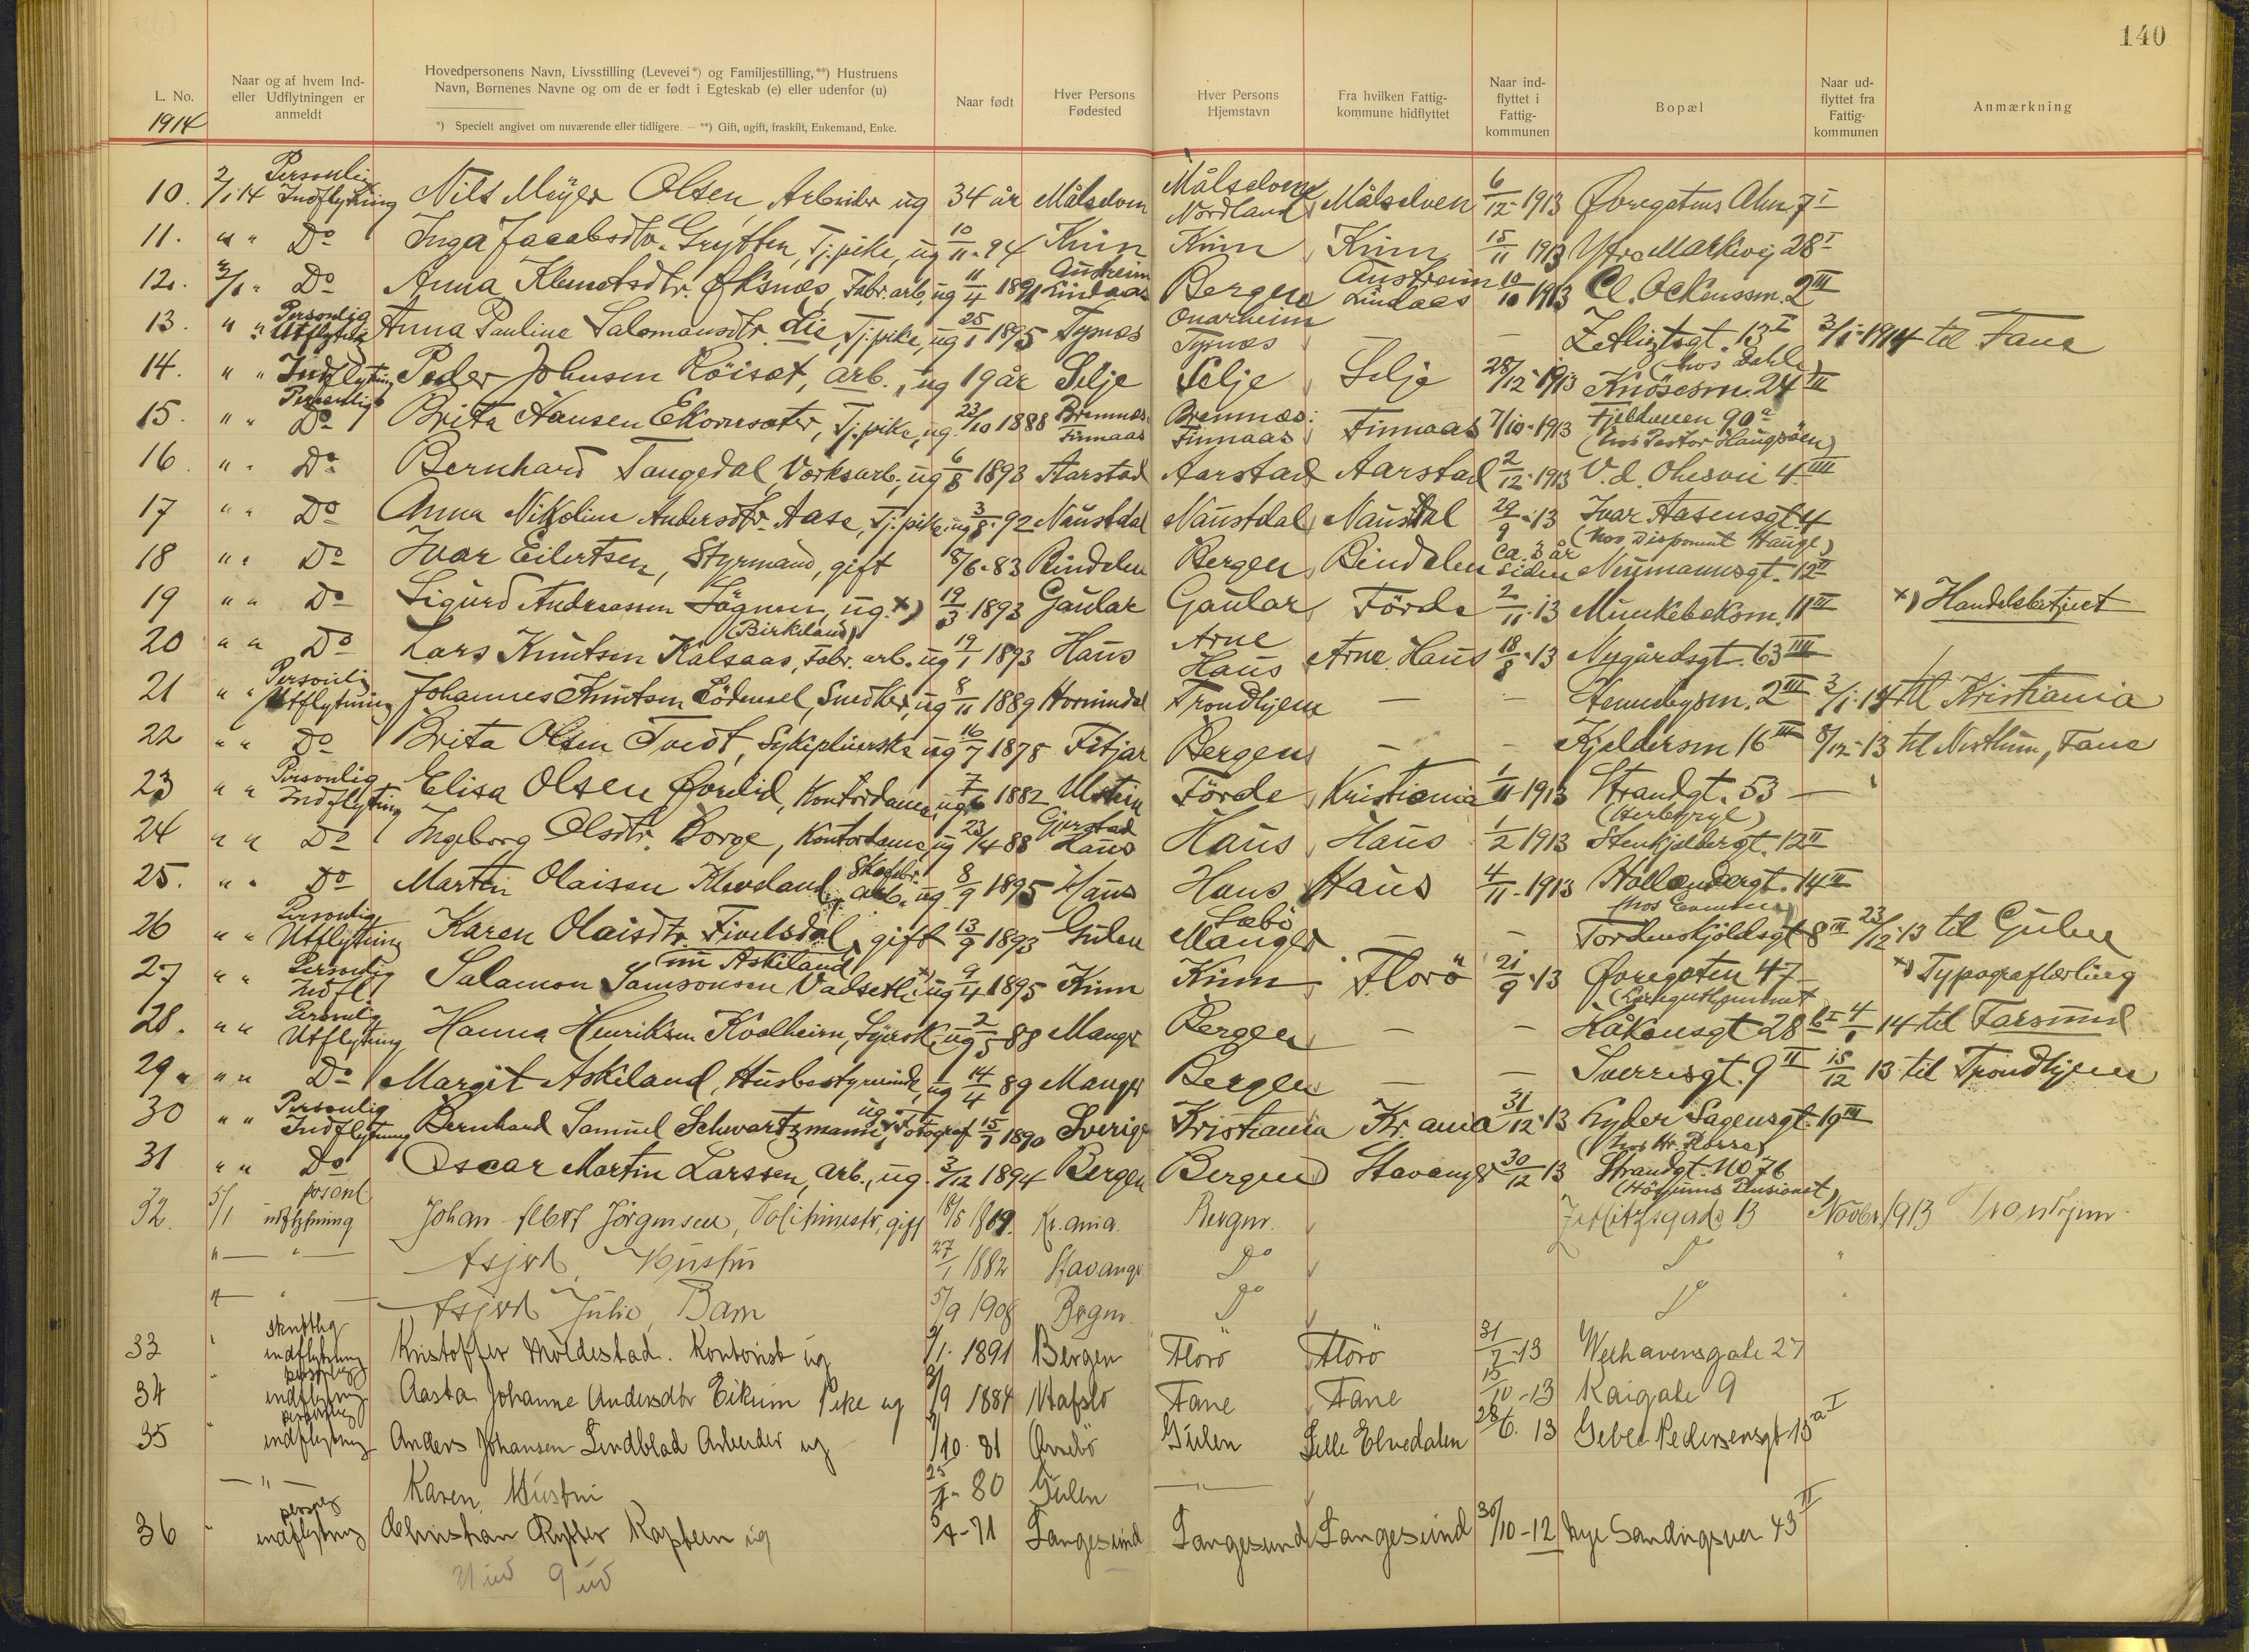 140
L. No.
1914
Naar og af hvem Ind-
eller Udflytningen er
anmeldt
Hovedpersonens Navn, Livsstilling (Levevei*) og Familjestilling,**) Hustruens
Navn, Børnenes Navne og om de er født i Egteskab (e) eller udenfor (u)
*) Specielt angivet om nuværende eller tidligere. — **) Gift, ugift, fraskilt, Enkemand, Enke.
Naar født
Hver Persons
Fødested
Hver Persons
Hjemstavn
Fra hvilken Fattig-
kommune hidflyttet
Naar ind-
flyttet i
Fattig-
kommunen
Bopæl
Naar ud-
flyttet fra
Fattig-
kommunen
Anmærkning
10. 2/1 14 Personlig Indflytning Nils Meyer Olsen, Arbeider ug 34 år Målselven Målselven Nordland Målselven 6/12 1913 Øvregatens Alm. 7 I
11. " " Do Inga Jacobsdtr. Grytten, Tj.pike, ug 10/11-94 Kinn Kinn Kinn 15/11 1913 Ytre Markvei 28 I
12. 3/1 " Do Anna Klemetsdtr. Øksnes, Fabr. arb, ug 11/4 1891 Austreim Lindaas Bergen Austreim Lindaas 10/10 1913 Cl. Ockenssm. 2 III
13. " " Personlig Utflytning Anna Pauline Salomonsdtr. Lie, Tj.pike, ug 25/1 1895 Tysnæs Onarheim Tysnæs — — Zetlitzgt. 13 I (hos Dahle) 3/1-1914 til Fane
14. " " Indflytning Personlig Peder Johnsen Röiset, arb., ug 19 år Selje Selje Selje 28/12-1913 Knösesm. 24 III
15. " " Do Brita Hansen Ekornsæter, Tj.pike, ug. 23/10 1888 Bremnes Finnaas Bremnes Finnaas Finnaas 7/10-1913 Fjeldveien 90 a (hos Pastor Haugsöen)
16. " " Do Bernhard Tangedal, Verksarb., ug 6/8 1893 Aarstad Aarstad Aarstad 2/12-1913 V. d. Ohesvei 4 III
17 " " Do Anna Nikoline Andersdtr. Aase, Tj.pike, ug 3/8-92 Naustdal Naustdal Naustdal 29/9-13 Ivar Aasensgt. 4 (hos Disponent Hauge)
18 " " Do Ivar Eilertsen, Styrmand, gift 8/6-83 Bindalen Bergen Bindalen ca. 3 år siden Neumannsgt. 12 II
19 " " Do Sigurd Andreassen Sögnen, ug. x) 19/3-1893 Gaular Gaular Förde 2/11-13 Munkebeksm. 11 III x) Handelsbetjent
20 " " Do Lars Knutsen Kalsaas, (Birkeland) Fabr. arb. ug 19/1 1893 Haus Arne Haus Arne Haus 18/8-13 Nygårdsgt. 63 III
21 " " Personlig Utflytning Johannes Knutsen Lödemel, Snedker, ug 8/11 1889 Hornindal Trondhjem — — 2 III 3/1-14 til Kristiania
22 " " Do Brita Olsen Tveit, Sykepleierske ug 16/7 1878 Fitjar Bergen — — Kjeldersm 16 III 8/12-13 til Nesttun, Fane
23 " " Personlig Indflytning Elisa Olsen Øvrelid, Kontordame, ug 7/6 1882 Ulstein Förde Kristiania 1/11-1913 Strandgt. 53 —
24 " " Do Ingeborg Olsdtr. Borge, Kontordame ug 23/4 88 Gjerstad Haus Haus Haus 1/2 1913 Stenkjeldergt. 12 II
25. " " Do Martin Olaisen Kleveland, Skofabr. arb. ug. 8/9 1895 Haus Haus Haus 4/11-1913 Hollendergt. 14 II
26 " " Personlig Utflytning Karen Olaisdtr. Fivelsdal, gift 13/9 1893 Gulen Sæbö Manger — — Tordenskjoldsgt 8 III 23/12-13 til Gulen
27 " " Personlig Indfl. Salamon Samsonsen Vadseth, x) ug 9/4 1895 Kinn Kinn Florö 21/9-13 Øvregaten 47 x) Typograflærling
28. " " Personlig Utflytning Hanna Henriksen Kvalheim, Syersk, ug 2/5 88 Manger Bergen — — Håkonsgt 28 4/1 14 til Farsund
29. " " Do Margit Askeland, Husbestyrerinde, ug 14/4 89 Manger Bergen — — Sverresgt. 9 II 15/12 13 til Trondhjem
30 " " Personlig Indflytning Bernhard Samuel Schwartzmann, ug. Fotograf 15/7 1890 Sverige Kristiania Kr.ania 31/12-13 Lyder Sagensgt. 19 III
31 " " Do Oscar Martin Larssen, arb., ug. 3/12 1894 Bergen Bergen Stavanger 30/12 13 Strandgt. No 76
32. 5/1 personl utflytning Johan Jörgensen, gift 18/5 1869. Kr.ania. Bergen. Zetlitzsgade 13 Novbr 1913 Trondhjem.
"— "— Hustru 27/1 1882 Stavanger Do Do "
"— " — Julie, Barn 5/9 1908 Bergen. Do Do "
33 " skriftlig indflytning Kristoffer Moldestad. Kontorist ug 9/1. 1891 Bergen Florö Florö 31/7-13 Welhavensgate 27
34 " personlig indflytning Aasta Johanne Andersdtr Eikum Pike ug 3/9 1884 Hafslo Fane Fane 15/10-13 Kaigate 9
35 " personlig indflytning Anders Johansen Lindblad Arbeider ug /10. 81 Gulen 28/6. 13 15 a I
—"— Karen, Hustru 25/ 80 Gulen —"—
36 " personlig indflytning Christian Kaptein ug /4-71 Langesund Langesund Langesund 30/10-12 Nye Sandviksvei 43 II